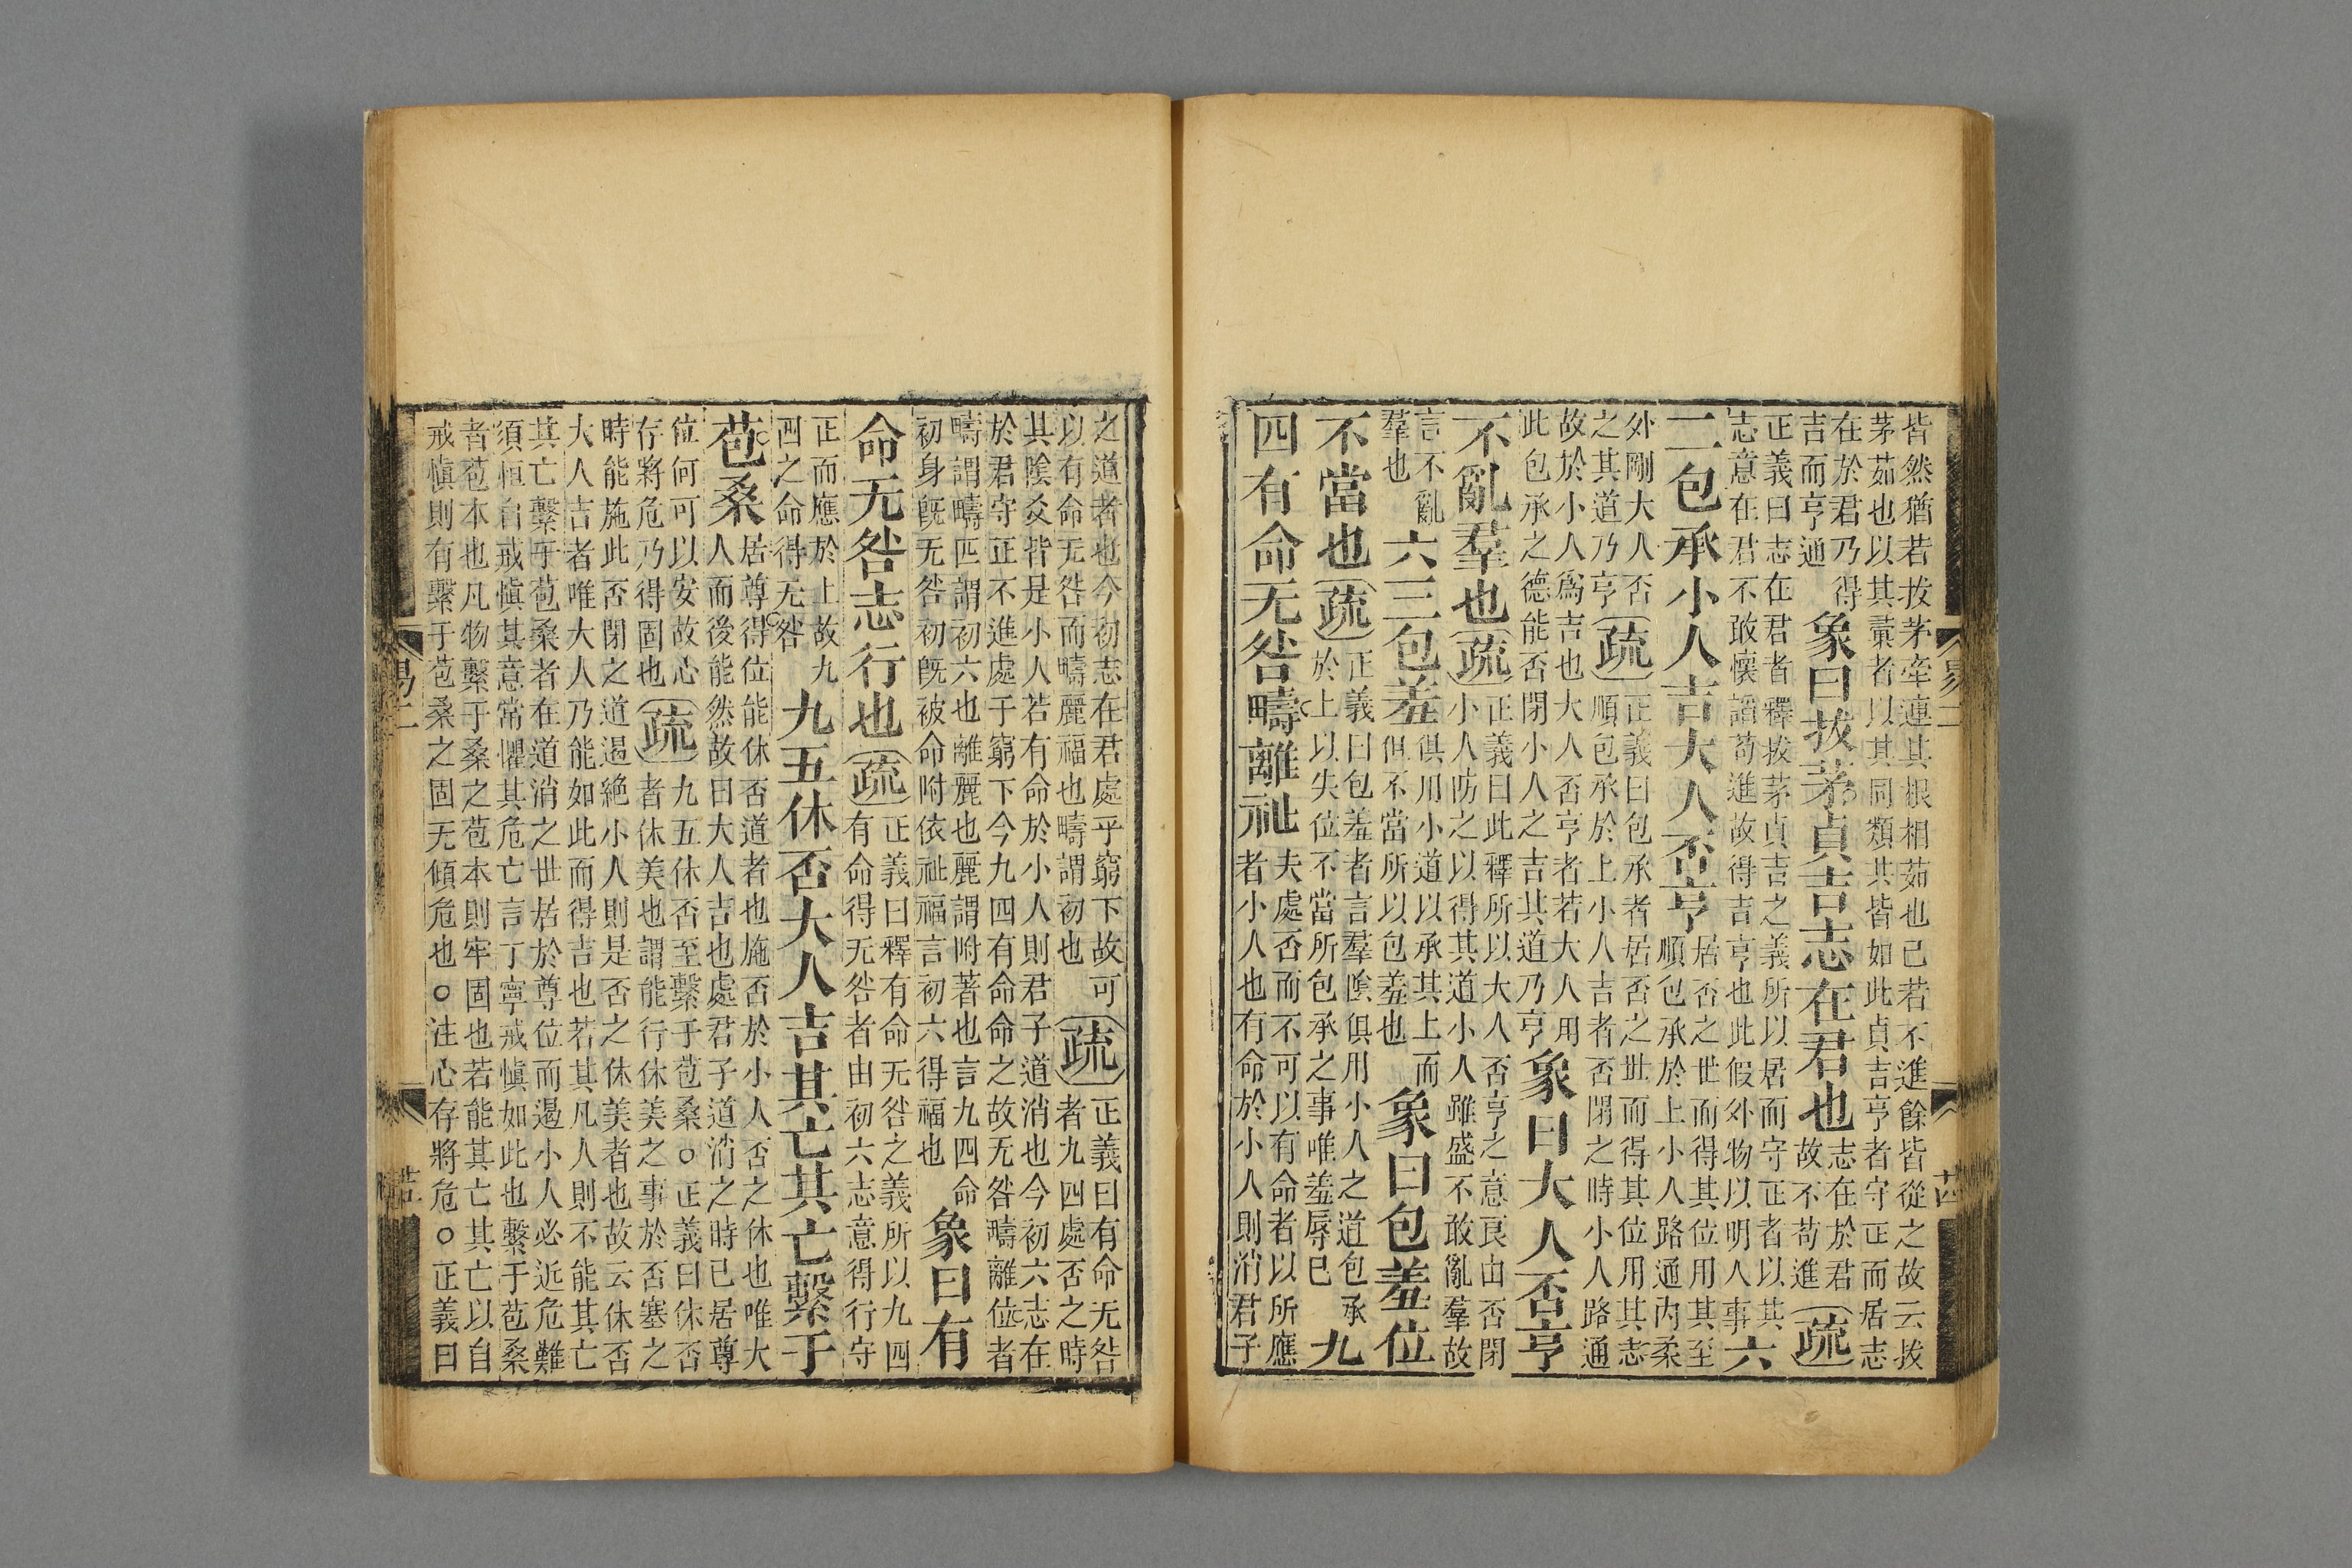 皆然猶若拔茅牽連其根相茹也己若不進餘皆從之故云拔
茅茹也以其彙者以其同類其皆如此貞吉亨者守正而居志
在於君乃得
吉而亨通
象曰拔茅貞吉志在君也
志在於君
故不苟進
疏
正義曰志在君者釋拔茅貞吉之義所以居而守正者以其
志意在君不敢懷諂苟進故得吉亨也此假外物以明人事
六
二包承小人吉大人否亨
居否之世而得其位用其至
順包承於上小人路通內柔
外剛大人否
之其道乃亨
疏
正義曰包承者居否之世而得其位用其志
順包承於上小人吉者否閉之時小人路通
故於小人爲吉也大人否亨者若大人用
此包承之德能否閉小人之吉其道乃亨
象曰大人否亨
不亂羣也
疏
正義曰此釋所以大人否亨之意良由否閉
小人防之以得其道小人雖盛不敢亂羣故
言不亂
羣也
六三包羞
俱用小道以承其上而
但不當所以包羞也
象曰包羞位
不當也
疏
正義曰包羞者言羣陰俱用小人之道包承
於上以失位不當所包承之事唯羞辱已
九
四有命无咎疇離祉
夫處否而不可以有命者以所應
者小人也有命於小人則消君子
之道者也今初志在君處乎窮下故可
以有命无咎而疇麗福也疇謂初也
疏
正義曰有命无咎
者九四處否之時
其陰爻皆是小人若有命於小人則君子道消也今初六志在
於君守正不進處于窮下今九四有命命之故无咎疇離位者
疇謂疇匹謂初六也離麗也麗謂附著也言九四命
初身旣无咎初旣被命附依祉福言初六得福也
象曰有
命无咎志行也
疏
正義曰釋有命无咎之義所以九四
有命得无咎者由初六志意得行守
正而應於上故九
四之命得无咎
九五休否大人吉其亡其亡繫于
苞桑
居尊得位能休否道者也施否於小人否之休也唯大
人而後能然故曰大人吉也處君子道消之時已居尊
位何可以安故心
存將危乃得固也
疏
九五休否至繫于苞桑○正義曰休否
者休美也謂能行休美之事於否塞之
時能施此否閉之道遏絶小人則是否之休美者也故云休否
大人吉者唯大人乃能如此而得吉也若其凡人則不能其亡
其亡繫于苞桑者在道消之世居於尊位而遏小人必近危難
須恒自戒愼其意常懼其危亡言丁寧戒愼如此也繫于苞桑
者苞本也凡物繫于桑之苞本則牢固也若能其亡其亡以自
戒愼則有繫于苞桑之固无傾危也○注心存將危○正義曰
易二
易二